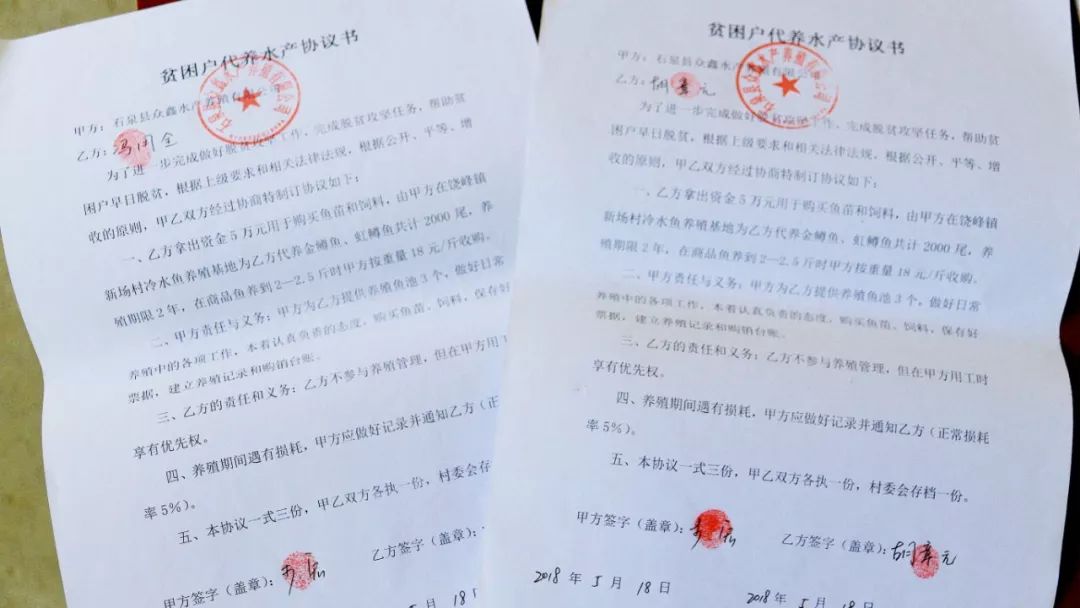 贫困户代养水产协议书
甲方：石泉县众鑫水产养殖有限公司
乙方：
为了进一步完成做好脱贫攻坚工作，完成脱贫攻坚任务，帮助贫
困户早日脱贫，根据上级要求和相关法律法规，根据公开、平等、增
收的原则，甲乙双方经过协商特制订协议如下：
一、乙方拿出资金5万元用于购买鱼苗和饲料，由甲方在饶峰镇
新场村冷水鱼养殖基地为乙方代养金鳟鱼、虹鳟鱼共计2000尾，养
殖期限2年，在商品鱼养到2—2.5斤时甲方按重量18元/斤收购。
二、甲方责任与义务：甲方为乙方提供养殖鱼池3个，做好日常
养殖中的各项工作，本着认真负责的态度，购买鱼苗、饲料，保存好
票据，建立养殖记录和购销台账。
三、乙方的责任和义务：乙方不参与养殖管理，但在甲方用工
享有优先权。
四、养殖期间遇有损耗，甲方应做好记录并通知乙方（正常损
率5%）。
五、本协议一式三份，甲乙双方各执一份，村委会存档一
甲方签字（盖章）：
乙方签字（盖章）：
月 18
贫困户代养水产协议书
甲方：石泉县众鑫水产养殖有限公司
乙方：
为了进一步完成做好脱贫攻坚工作，完成脱贫攻坚任务，帮助贫
困户早日脱贫，根据上级要求和相关法律法规，根据公开、平等、增
收的原则，甲乙双方经过协商特制订协议如下：
一、乙方拿出资金5万元用于购买鱼苗和饲料，由甲方在饶峰镇
新场村冷水鱼养殖基地为乙方代养金鳟鱼、虹鳟鱼共计2000尾，养
殖期限2年，在商品鱼养到2—2.5斤时甲方按重量18元/斤收购。
二、甲方责任与义务：甲方为乙方提供养殖鱼池3个，做好日常
养殖中的各项工作，本着认真负责的态度，购买鱼苗、饲料，保存好
票据，建立养殖记录和购销台账。
三、乙方的责任和义务：乙方不参与养殖管理，但在甲方用工时
享有优先权。
四、养殖期间遇有损耗，甲方应做好记录并通知乙方（正常损耗
率5%）。
五、本协议一式三份，甲乙双方各执一份，村委会存档一份。
甲方签字（盖章）：
乙方签字（盖章）：
2018 年 5 月 18 日
2018 年 5 月 18 日